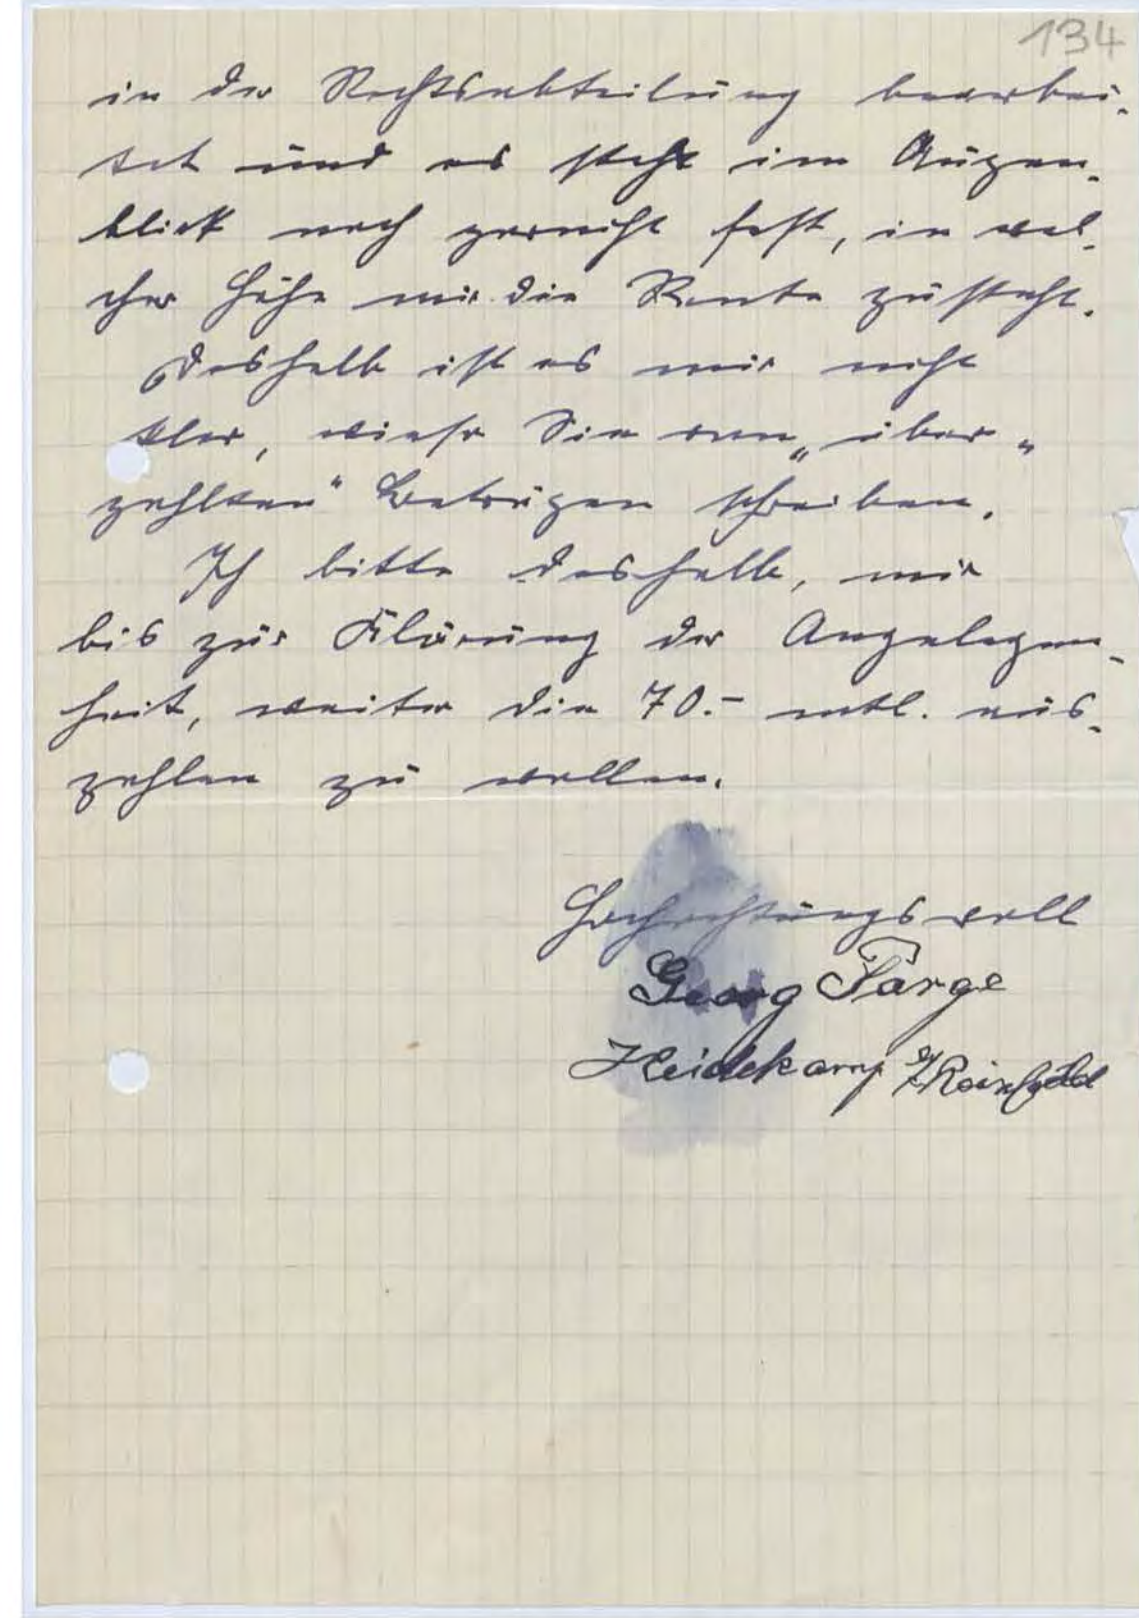 134
in der Rechtsabteilung bearbei-
tet und es steht im Augen-
blick noch garnicht fest, in wel-
cher Höhe mir die Rente zusteht.
Deshalb ist es mir nicht
klar, wieso Sie von „über-
zahlten“ Beträgen schreiben.
Ich bitte deshalb, mir
bis zur Klärung der Angelegen-
heit, weiter die 70.- mtl. aus-
zahlen zu wollen.
Hochachtungsvoll
Georg Farge
Heidekamp b/Reinfeld